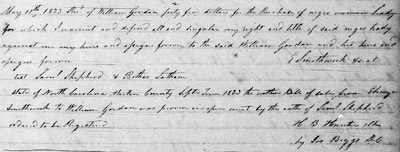 May 10th 1833 Recd of William Gordon forty five dollars for the Purchase of negro woman Lealy
for which I warrent and defend all and singular my right and title of said negro Lealy
against me my heirs and assigns forever to the said William Gordon and his heirs and
assigns forever
E Smithwick Seal
test Saml Shepherd & Rollen Latham
State of North Carolina Martin County Sept Term 1833 the within Bill of sale from
Smithwick to William Gordon was proven in open court by the oath of Saml Shepherd
ordered to be Registered
H B Hunter clk
by Jos Biggs